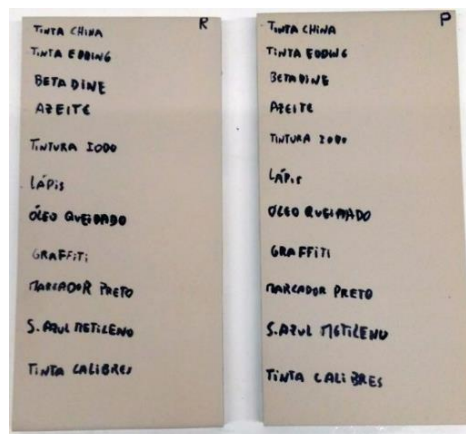 R
TINTA CHINA
TINTA EDDING
BETADINE
AZEITE
TINTURA IODO
LÁPIS
ÓLEO QUEIMADO
GRAFFITI
MARCADOR PRETO
S. AZUL METILENO
TINTA CALIBRES
P
TINTA CHINA
TINTA EDDING
BETADINE
AZEITE
TINTURA IODO
LÁPIS
ÓLEO QUEIMADO
GRAFFITI
MARCADOR PRETO
S. AZUL METILENO
TINTA CALIBRES